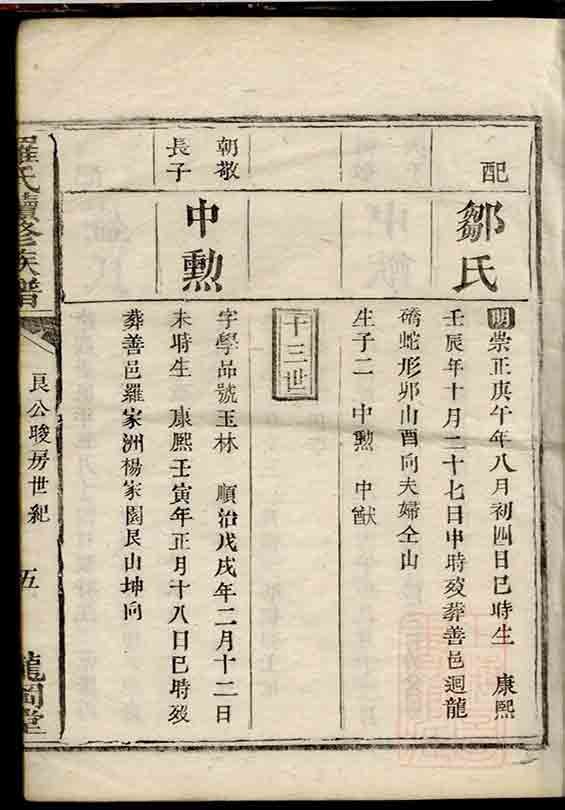 配
鄒氏
明崇正庚午年八月初四日巳時生　康熙
壬辰年十月二十七日申時歿葬善邑迴龍
磜蛇形卯山酉向夫婦仝山
生子二　中勲　中猷
十三世
朝敬
長子
中勲
字學品號玉林　順治戊戌年二月十二日
未時生　康熙壬寅年正月十八日巳時歿
葬善邑羅家洲楊家園艮山坤向
羅氏續修族譜
良公晙房世紀
五
龍岡堂